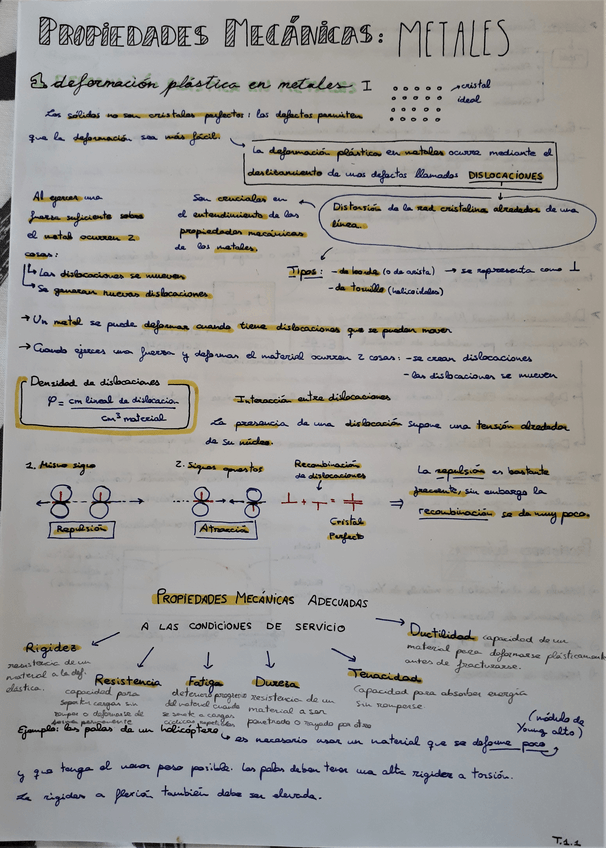 PROPIEDADES MECÁNICAS: METALES
deformación plástica en metales I
cristal
ideal
Los sólidos no son cristales perfectos: los defectos permiten
que la deformación sea más fácil.
La deformación plástica en metales ocurre mediante el
deslizamiento de unos defectos llamados DISLOCACIONES
Distorsión de la red cristalina alrededor de una
línea.
Son cruciales en
el entendimiento de las
propiedades mecánicas
de los metales.
Al ejercer una
fuerza suficiente sobre
el metal ocurren 2
cosas:
Las dislocaciones se mueven
Se generan nuevas dislocaciones
Tipos: - de borde (o de arista) → se representa como ⊥
- de tornillo (helicoidales)
→ Un metal se puede deformar cuando tiene dislocaciones que se puedan mover
→ Cuando ejerces una fuerza y deformas el material ocurren 2 cosas: - se crean dislocaciones
- las dislocaciones se mueven
Densidad de dislocaciones
φ = cm lineal de dislocación
cm³ material
Interacción entre dislocaciones
La presencia de una dislocación supone una tensión alrededor
de su núcleo.
1. Mismo signo
Repulsión
2. Signos opuestos
Atracción
Recombinación
de dislocaciones
⊥ + ⊤ =
Cristal
Perfecto
⇒ La repulsión es bastante
frecuente, sin embargo la
recombinación se da muy poco.
PROPIEDADES MECÁNICAS ADECUADAS
A LAS CONDICIONES DE SERVICIO
Rigidez
resistencia de un
material a la def.
elástica.
Resistencia
capacidad para
soportar cargas sin
romper o deformarse de
forma permanente
Fatiga
deterioro progresivo
del material cuando
se somete a cargas
cíclicas repetidas
Dureza
resistencia de un
material a ser
penetrado o rayado por otro
Tenacidad
Capacidad para absorber energía
sin romperse.
Ductilidad capacidad de un
material para deformarse plásticamente
antes de fracturarse.
Ejemplo: las palas de un helicóptero
es necesario usar un material que se deforme poco
(módulo de
Young alto)
y que tenga el menor peso posible. Las palas deben tener una alta rigidez a torsión.
La rigidez a flexión también debe ser elevada.
T.1.1